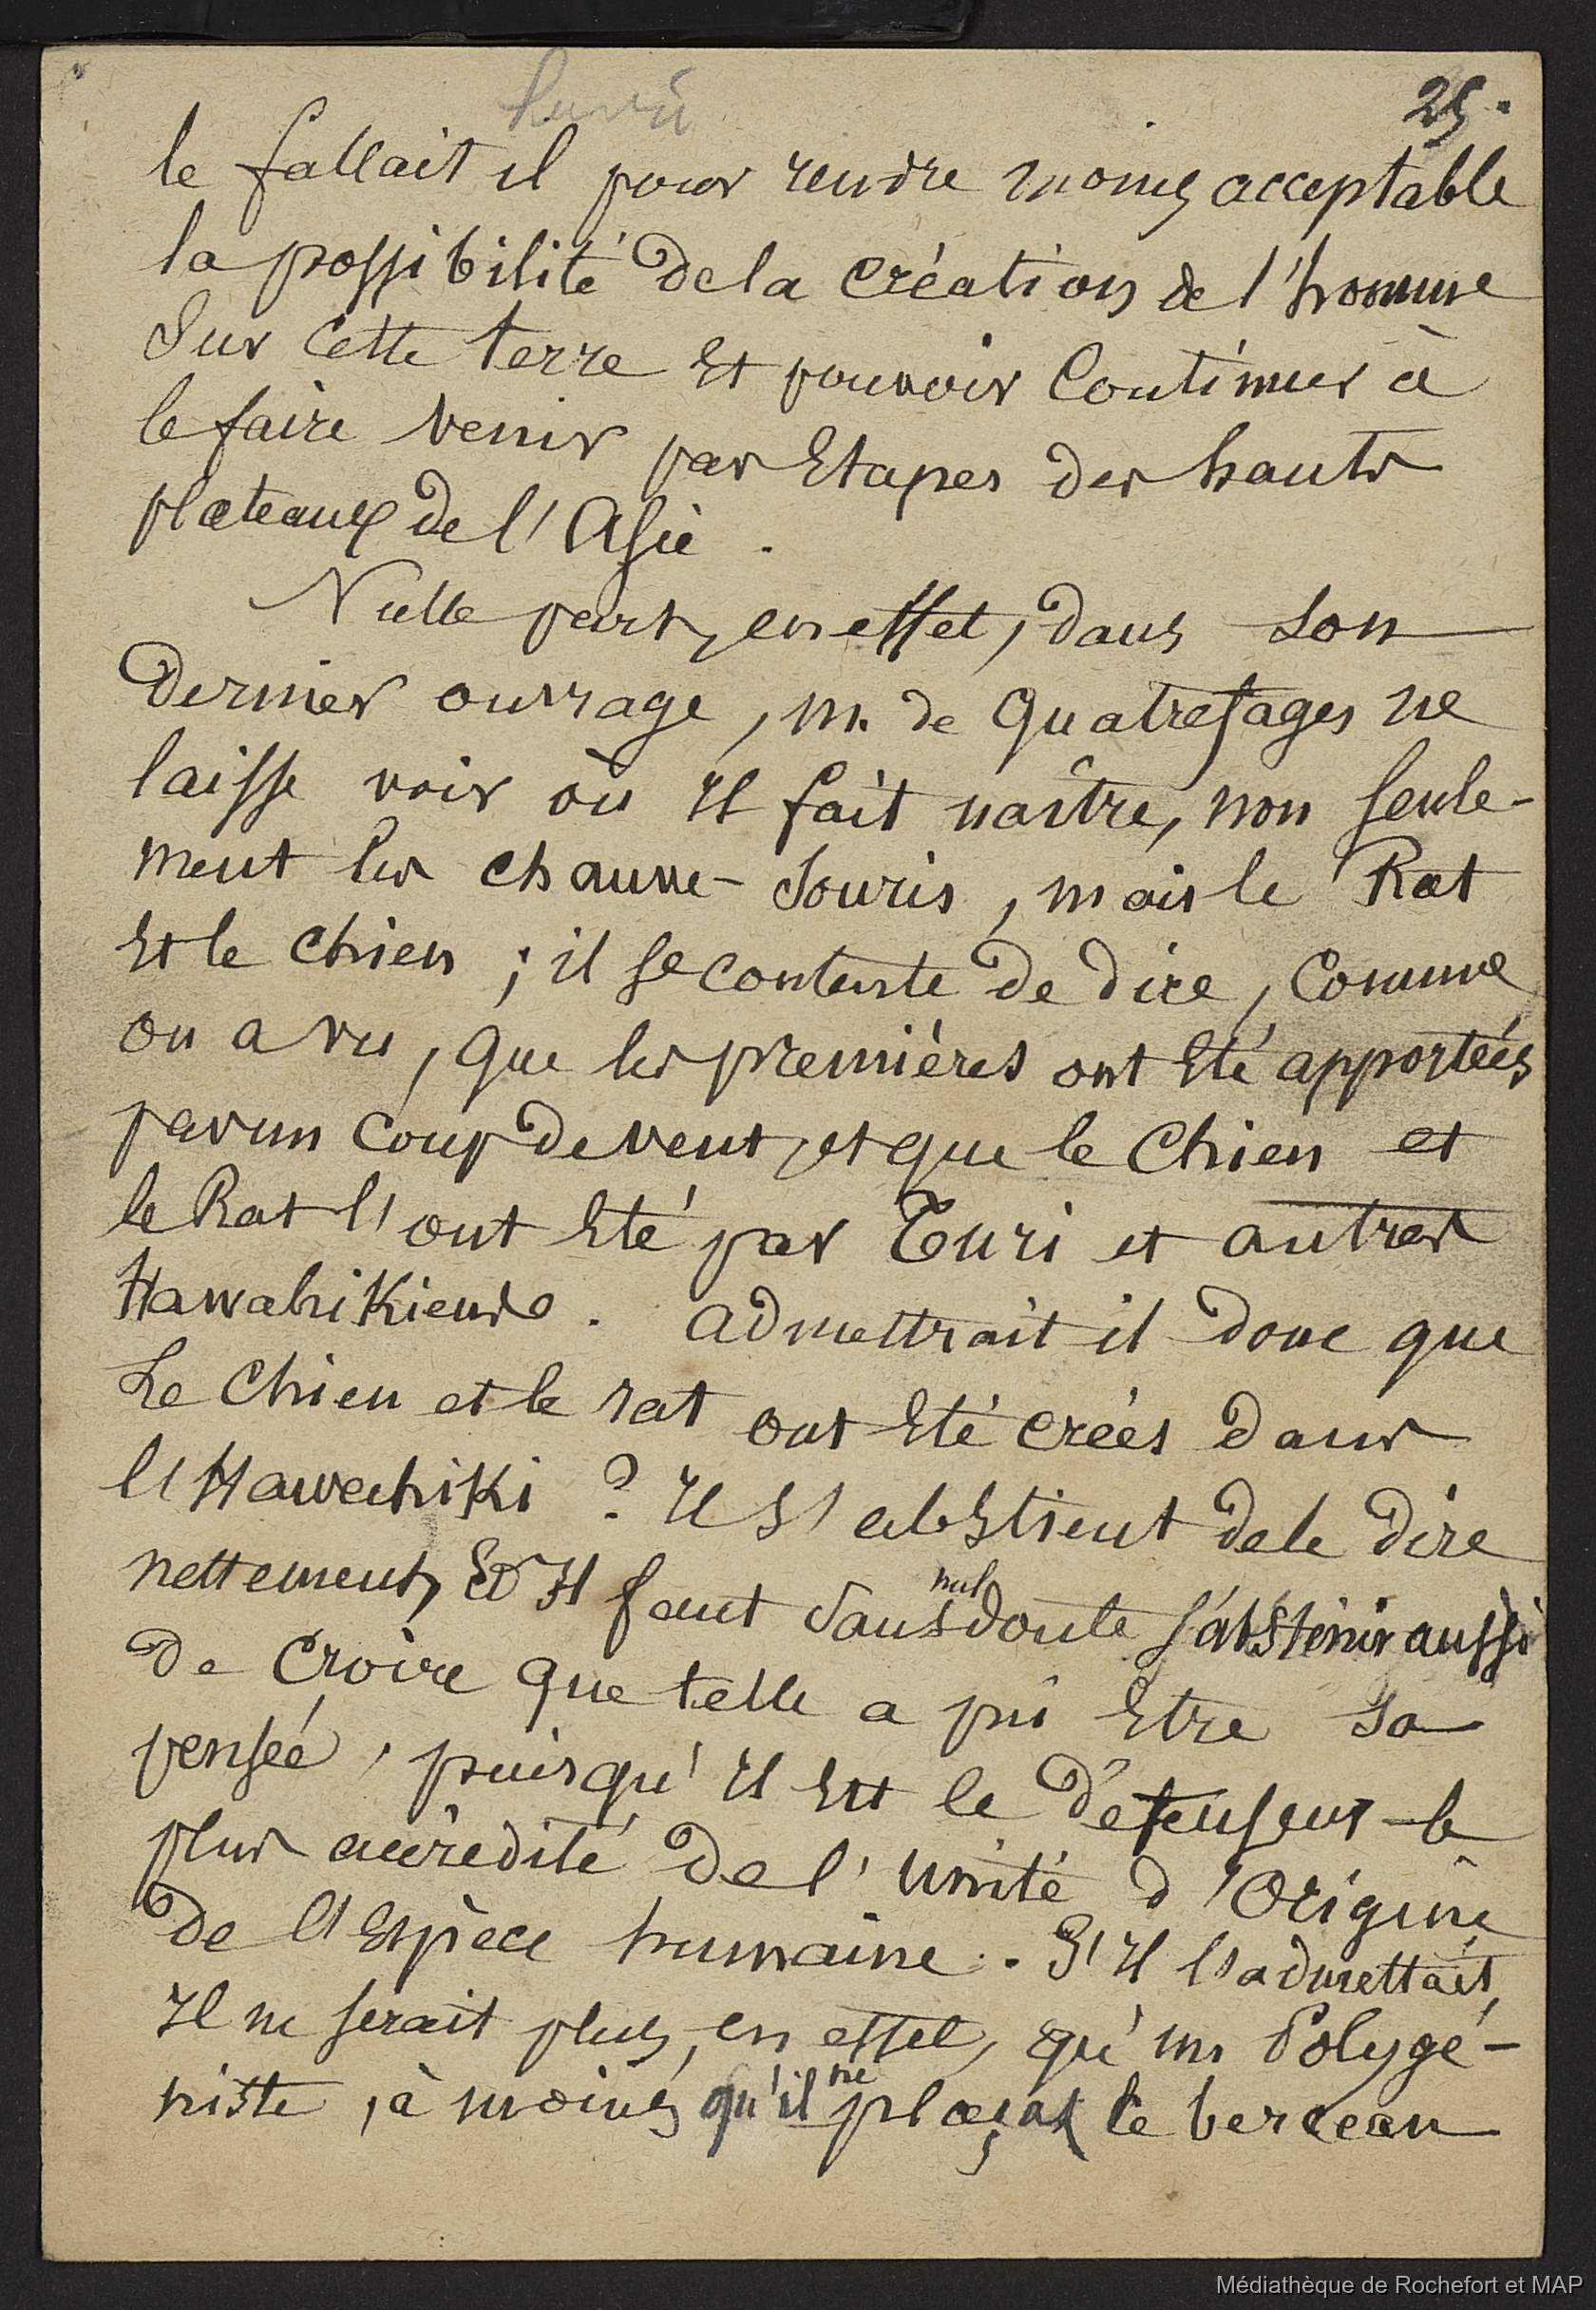 25.
le fallait il pour rendre moins acceptable
la possibilité de la création de l'homme
Sur cette terre Et pouvoir Continuer à
le faire venir par Etapes des hauts
plateaux de l'Asie.
Nulle part, en effet, dans son
dernier ouvrage, M. de Quatrefages ne
laisse voir où Il fait naître, non seule-
ment les chauve-souris, mais le Rat
Et le chien ; il se contente de dire, comme
on a vu, que les premières ont Eté apportées
par un coup de vent, et que le chien et
le Rat l'ont Eté par Turi et autres
Hawahikiens. Admettrait il donc que
Le chien et le rat ont Eté créés dans
l'Hawahiki ? Il s'abstient de le dire
nettement, Et Il faut sans nul doute s'abstenir aussi
de croire que telle a pû Etre sa
pensée, puisqu'Il Est le défenseur le
plus accrédité de l'unité d'Origine
de l'Espèce humaine. S'Il l'admettait,
Il ne serait plus, en effet, qu'un Polygé-
niste, à moins qu'il ne plaçat le berceau
Médiathèque de Rochefort et MAP